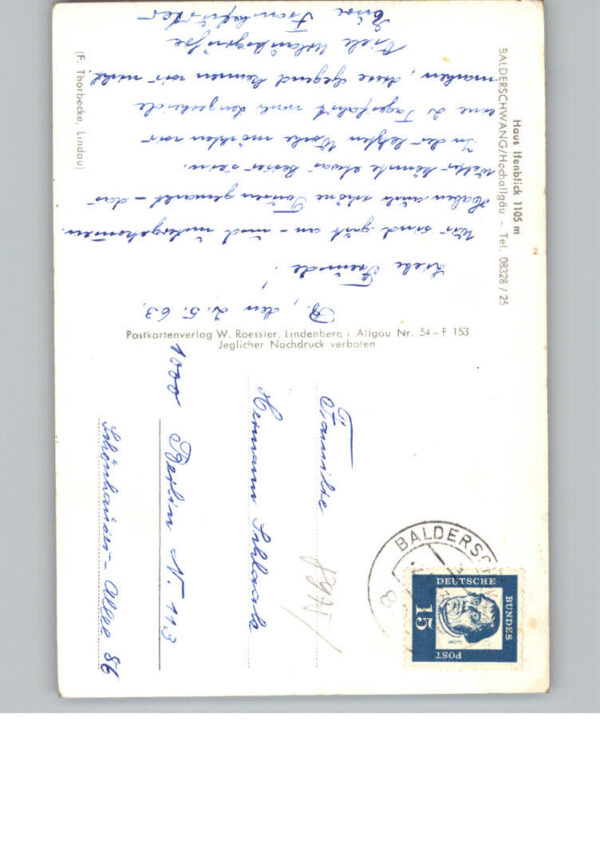 Haus Ifenblick 1105 m
BALDERSCHWANG/Hochallgäu - Tel. 08328/25
B, den 2.5.63.
Liebe Freunde!
Wir sind gut an- und untergekommen.
Haben auch schöne Touren gemacht - das
Wetter könnte etwas besser sein.
In der letzten Woche möchten wir
eine 2 Tagesfahrt nach
machen, diese Gegend kennen wir nicht.
Viele Urlaubsgrüße
Eure
(F. Thorbecke, Lindau)
Postkartenverlag W. Roessler, Lindenberg i. Allgäu Nr. 54 - F 153
Jeglicher Nachdruck verboten
BALDERSC
DEUTSCHE
BUNDES
POST
15
Familie
Hermann
1000 Berlin N. 113
Schönhauser-Allee 86